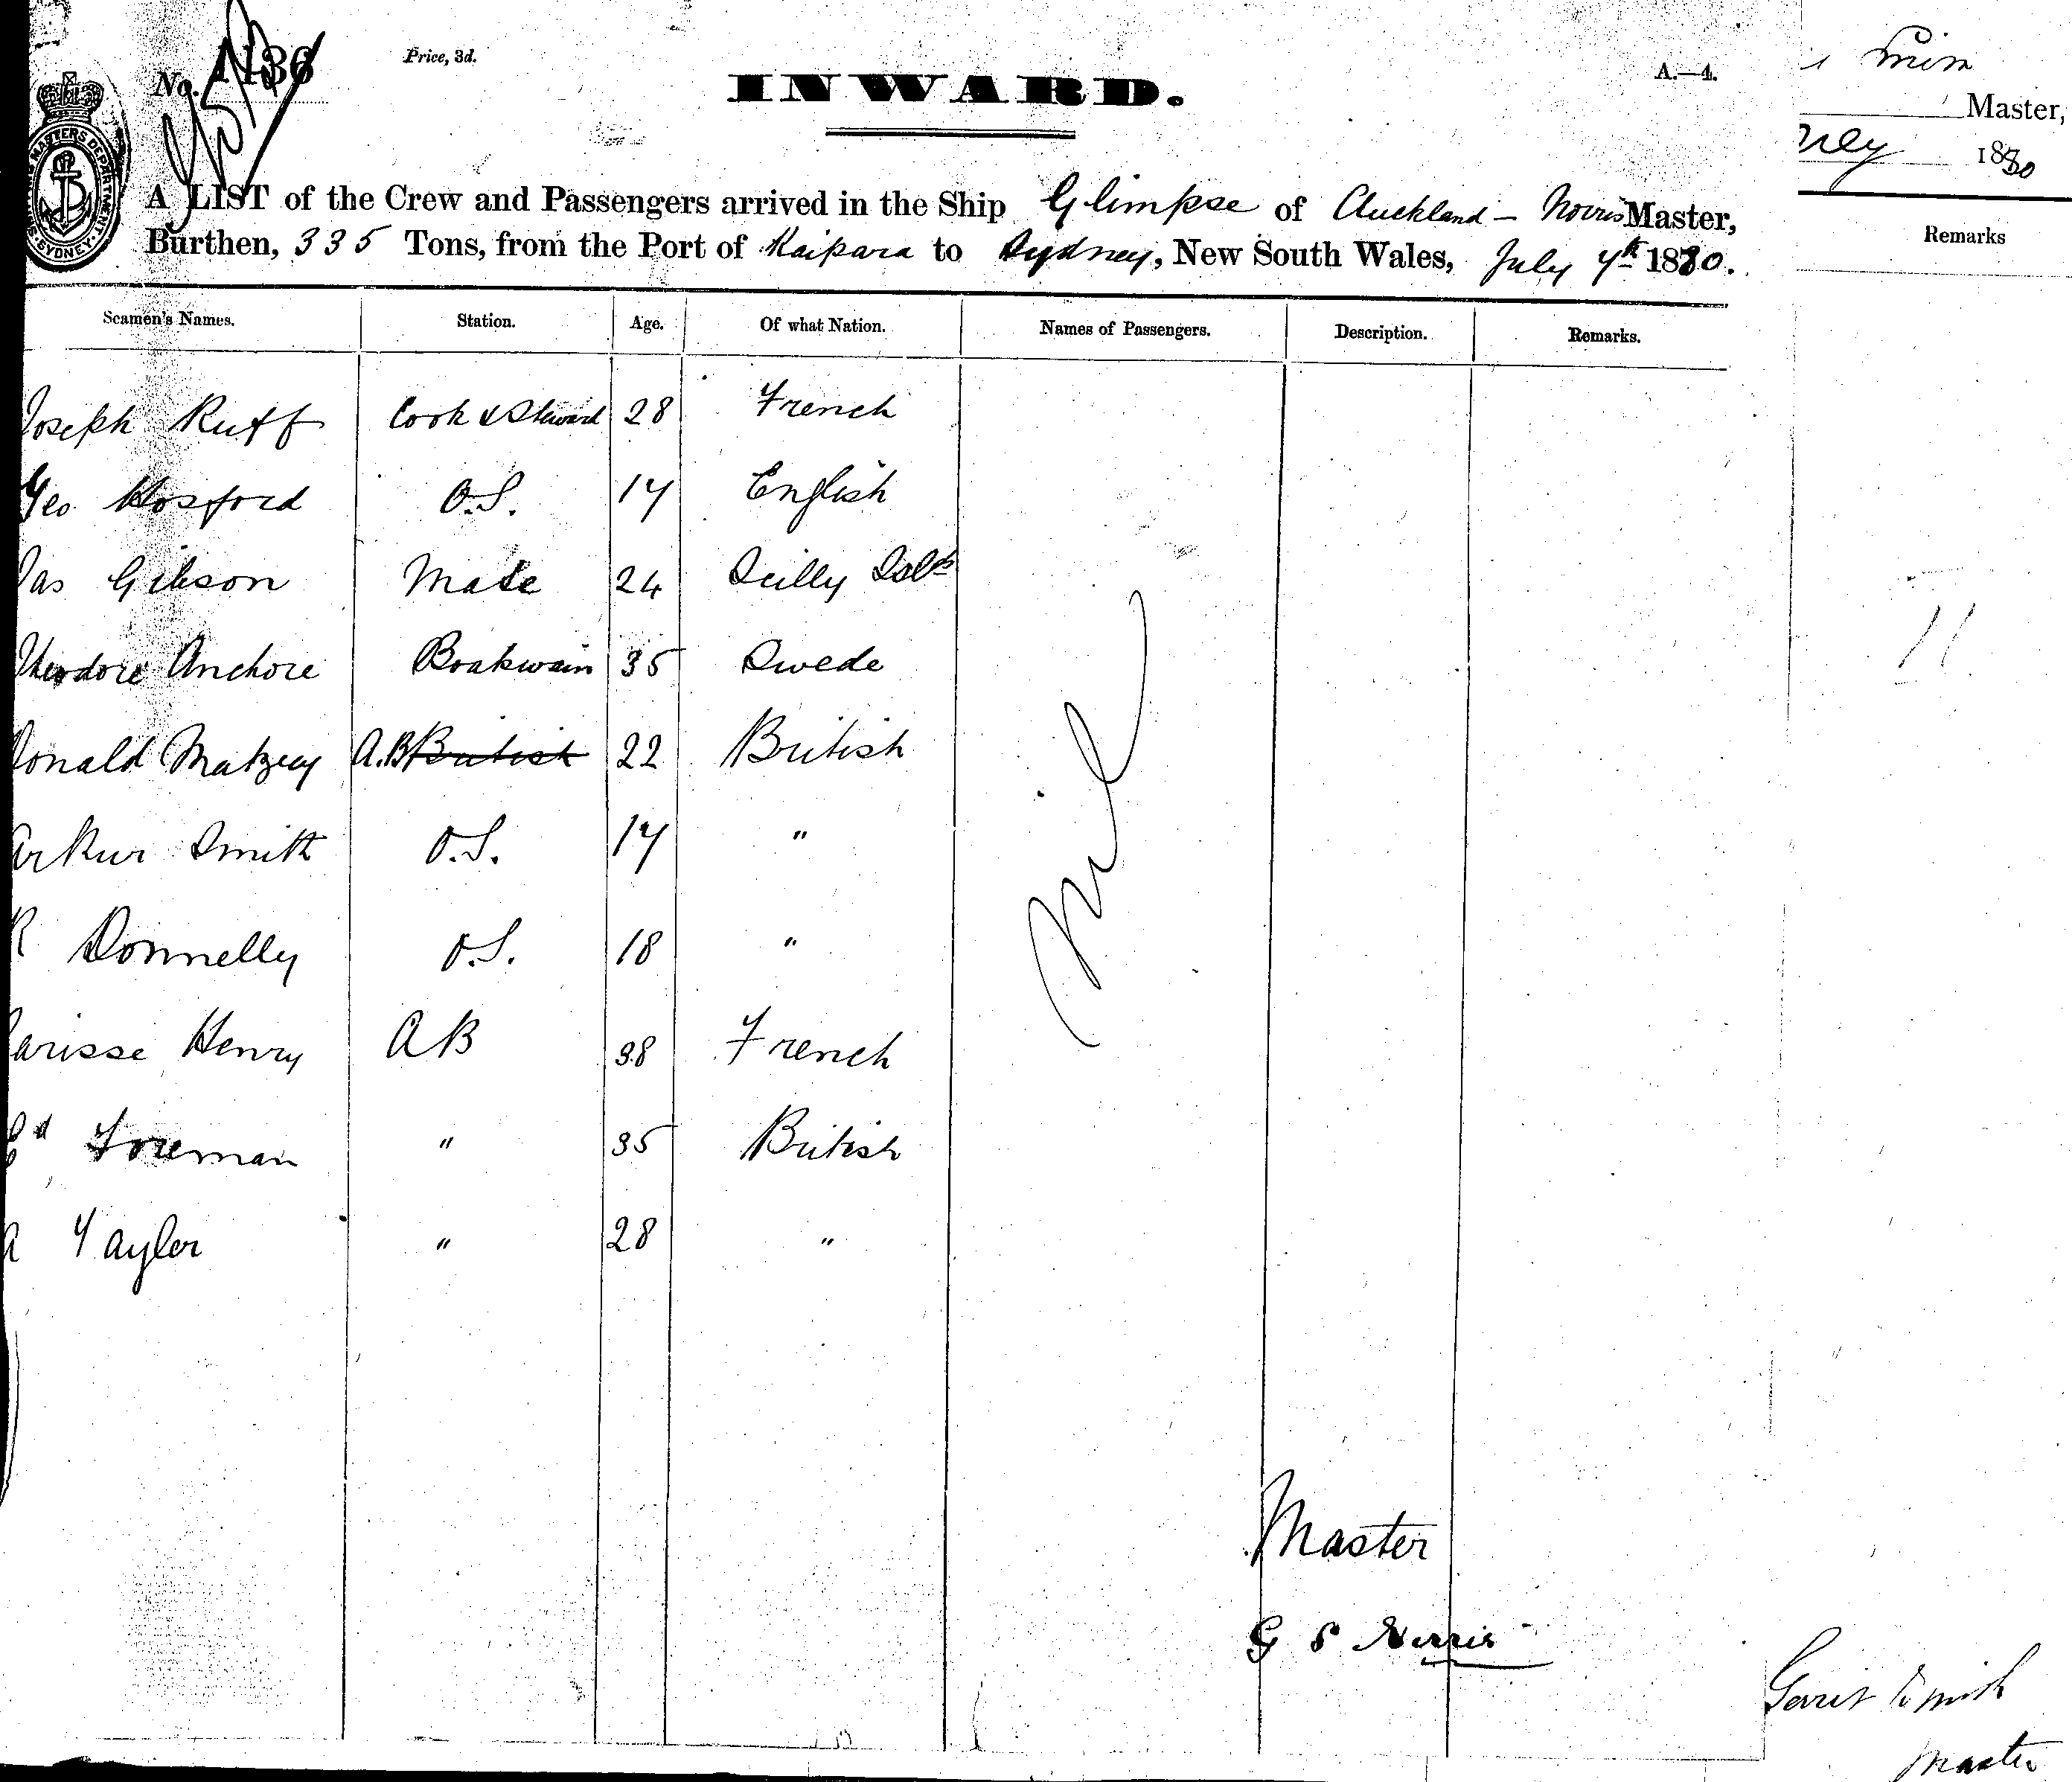 No. 1136
Price, 3d.
INWARD.
A.—4.
A LIST of the Crew and Passengers arrived in the Ship Glimpse of Auckland – Norris Master,
Burthen, 335 Tons, from the Port of Kaipara to Sydney, New South Wales, July 7th 1880.
Seamen's Names. Station. Age. Of what Nation. Names of Passengers. Description. Remarks.
Joseph Ruff Cook & Steward 28 French
Geo Hosford O.S. 17 English
Jas Gibson Mate 24 Scilly Isls
Theodore Anchore Boatswain 35 Swede
Donald A.B British 22 British
Arthur Smith O.S. 17 "
R Donnelly O.S. 18 "
Henry AB 38 French
Ed Foreman " 35 British
A Taylor " 28 "
Nil
Master
G S Norris
Master,
ney 1880
Remarks
Smith
Master